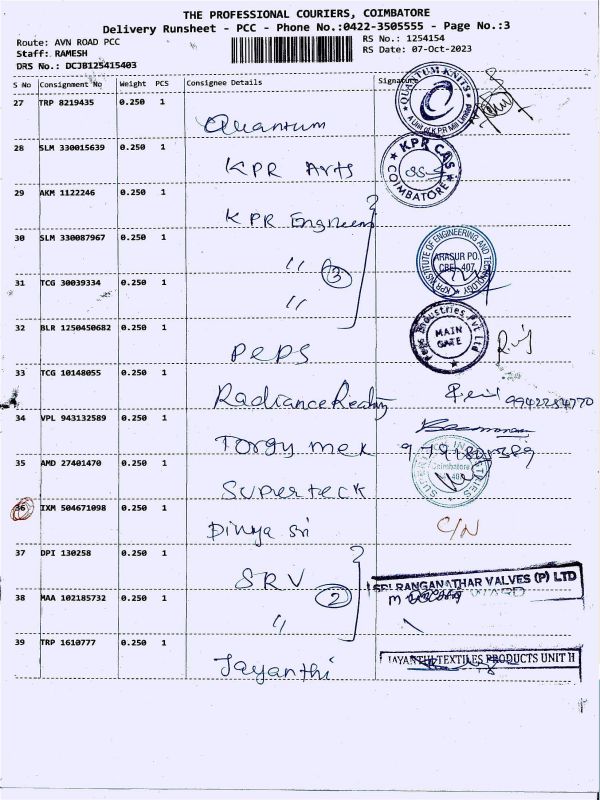 THE PROFESSIONAL COURIERS, COIMBATORE
Delivery Runsheet - PCC - Phone No.:0422-3505555 - Page No.:3
Route: AVN ROAD PCC
RS No.: 1254154
Staff: RAMESH
RS Date: 07-Oct-2023
DRS No.: DCJB125415403
S No Consignment No Weight PCS Consignee Details Signature
27 TRP 8219435 0.250 1
Quantum
QUANTUM KNITS
A Unit of K.P.R Mill Limited
28 SLM 330015639 0.250 1
KPR Arts
KPR CAS
COIMBATORE
29 AKM 1122246 0.250 1
KPR Engineem
30 SLM 330087967 0.250 1
" 3
KPR INSTITUTE OF ENGINEERING AND TECHNOLOGY
ARASUR PO.
CBE - 407.
31 TCG 30039334 0.250 1
"
32 BLR 1250450682 0.250 1
PePS
Peps Industries Pvt Ltd
MAIN GATE
33 TCG 10148055 0.250 1
Radiance Ready
34 VPL 943132589 0.250 1
Torgy mek
35 AMD 27401470 0.250 1
Superteck
Coimbatore
36 IXM 504671098 0.250 1
Divya Sri C/N
37 DPI 130258 0.250 1
SRV
SRI RANGANATHAR VALVES (P) LTD
38 MAA 102185732 0.250 1
" 2
39 TRP 1610777 0.250 1
Jayanthi
JAYANTHI TEXTILES PRODUCTS UNIT II